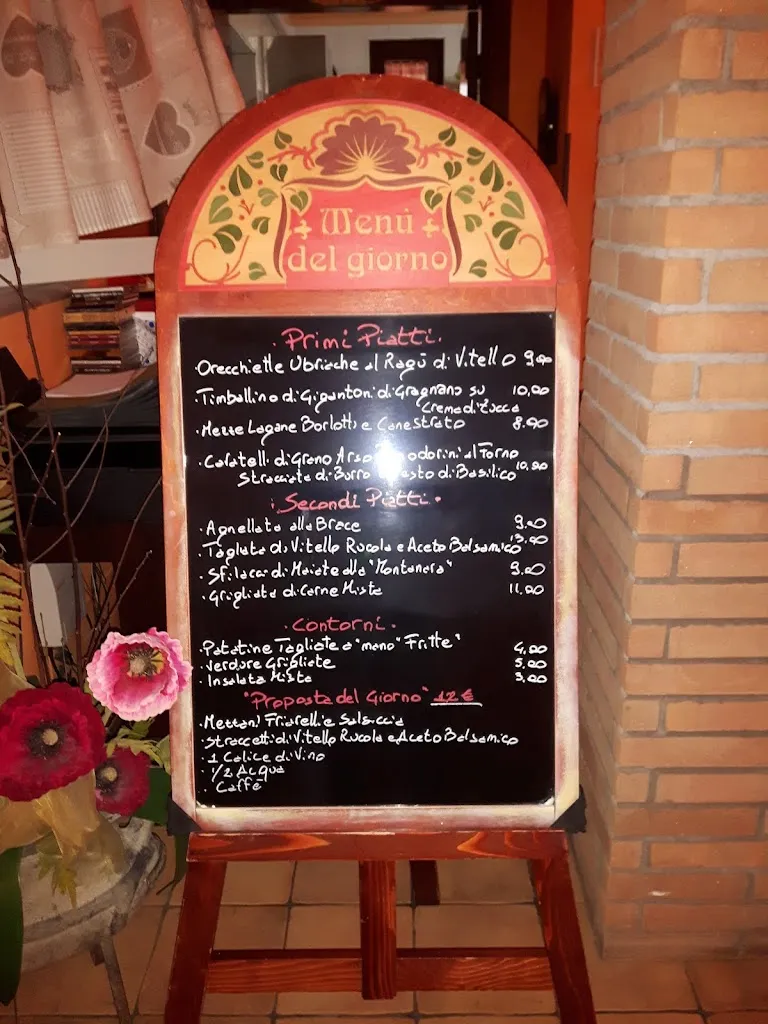 Menú
del giorno
Primi Piatti.
.Orecchiette Ubriache al Ragù di Vitello 9,00
.Timballino di Gigantoni di Gragnano su 10,00
Crema di Zucca
.Mezze Lagane Borlotti e Canestrato 8.00
.Cavatelli di Grano Arso al Forno
Stracciata di Burro di Basilico 10,00
Secondi Piatti.
.Agnellata alla Brace 9,00
.Tagliata di Vitello Rucola e Aceto Balsamico 13,00
.Sfilacci di Maiale alla "Montanara" 9,00
.Grigliata di Carne Mista 11,00
.Contorni.
.Patatine Tagliate a "mano" Fritte" 4,00
.Verdure Grigliate 5,00
.Insalata Mista 3,00
"Proposta del Giorno" 12 €
.Mezzani Friarelli e Salsiccia
.Straccetti di Vitello Rucola e Aceto Balsamico
.1 Calice di Vino
.1/2 Acqua
.Caffè